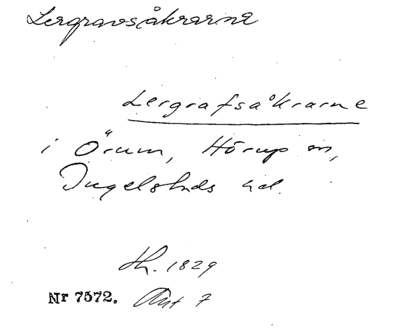 Lergravsåkrarne
Lergrafsåkrarne
i Örum, Hörup sn,
Ingelstads hd.
Sh. 1829
Nr 7572. Akt 7